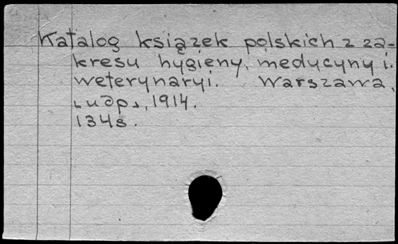 Katalog książek polskich z za-
kresu hygieny, medycyny i.
weterynaryi. Warszawa,
1914.
134s.